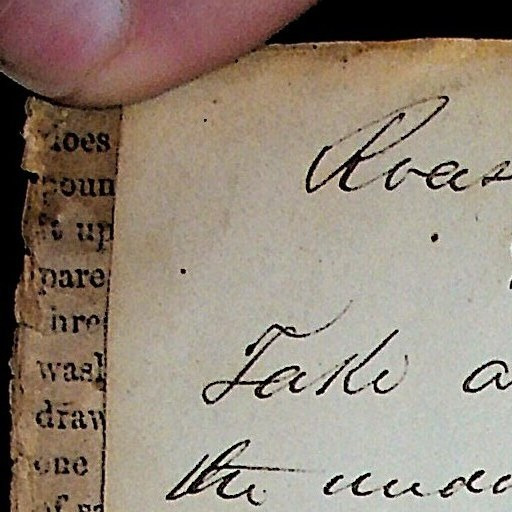 does
poun
it up
pare
hre
wash
draw
one
of sa
Roas
Take a
the unde